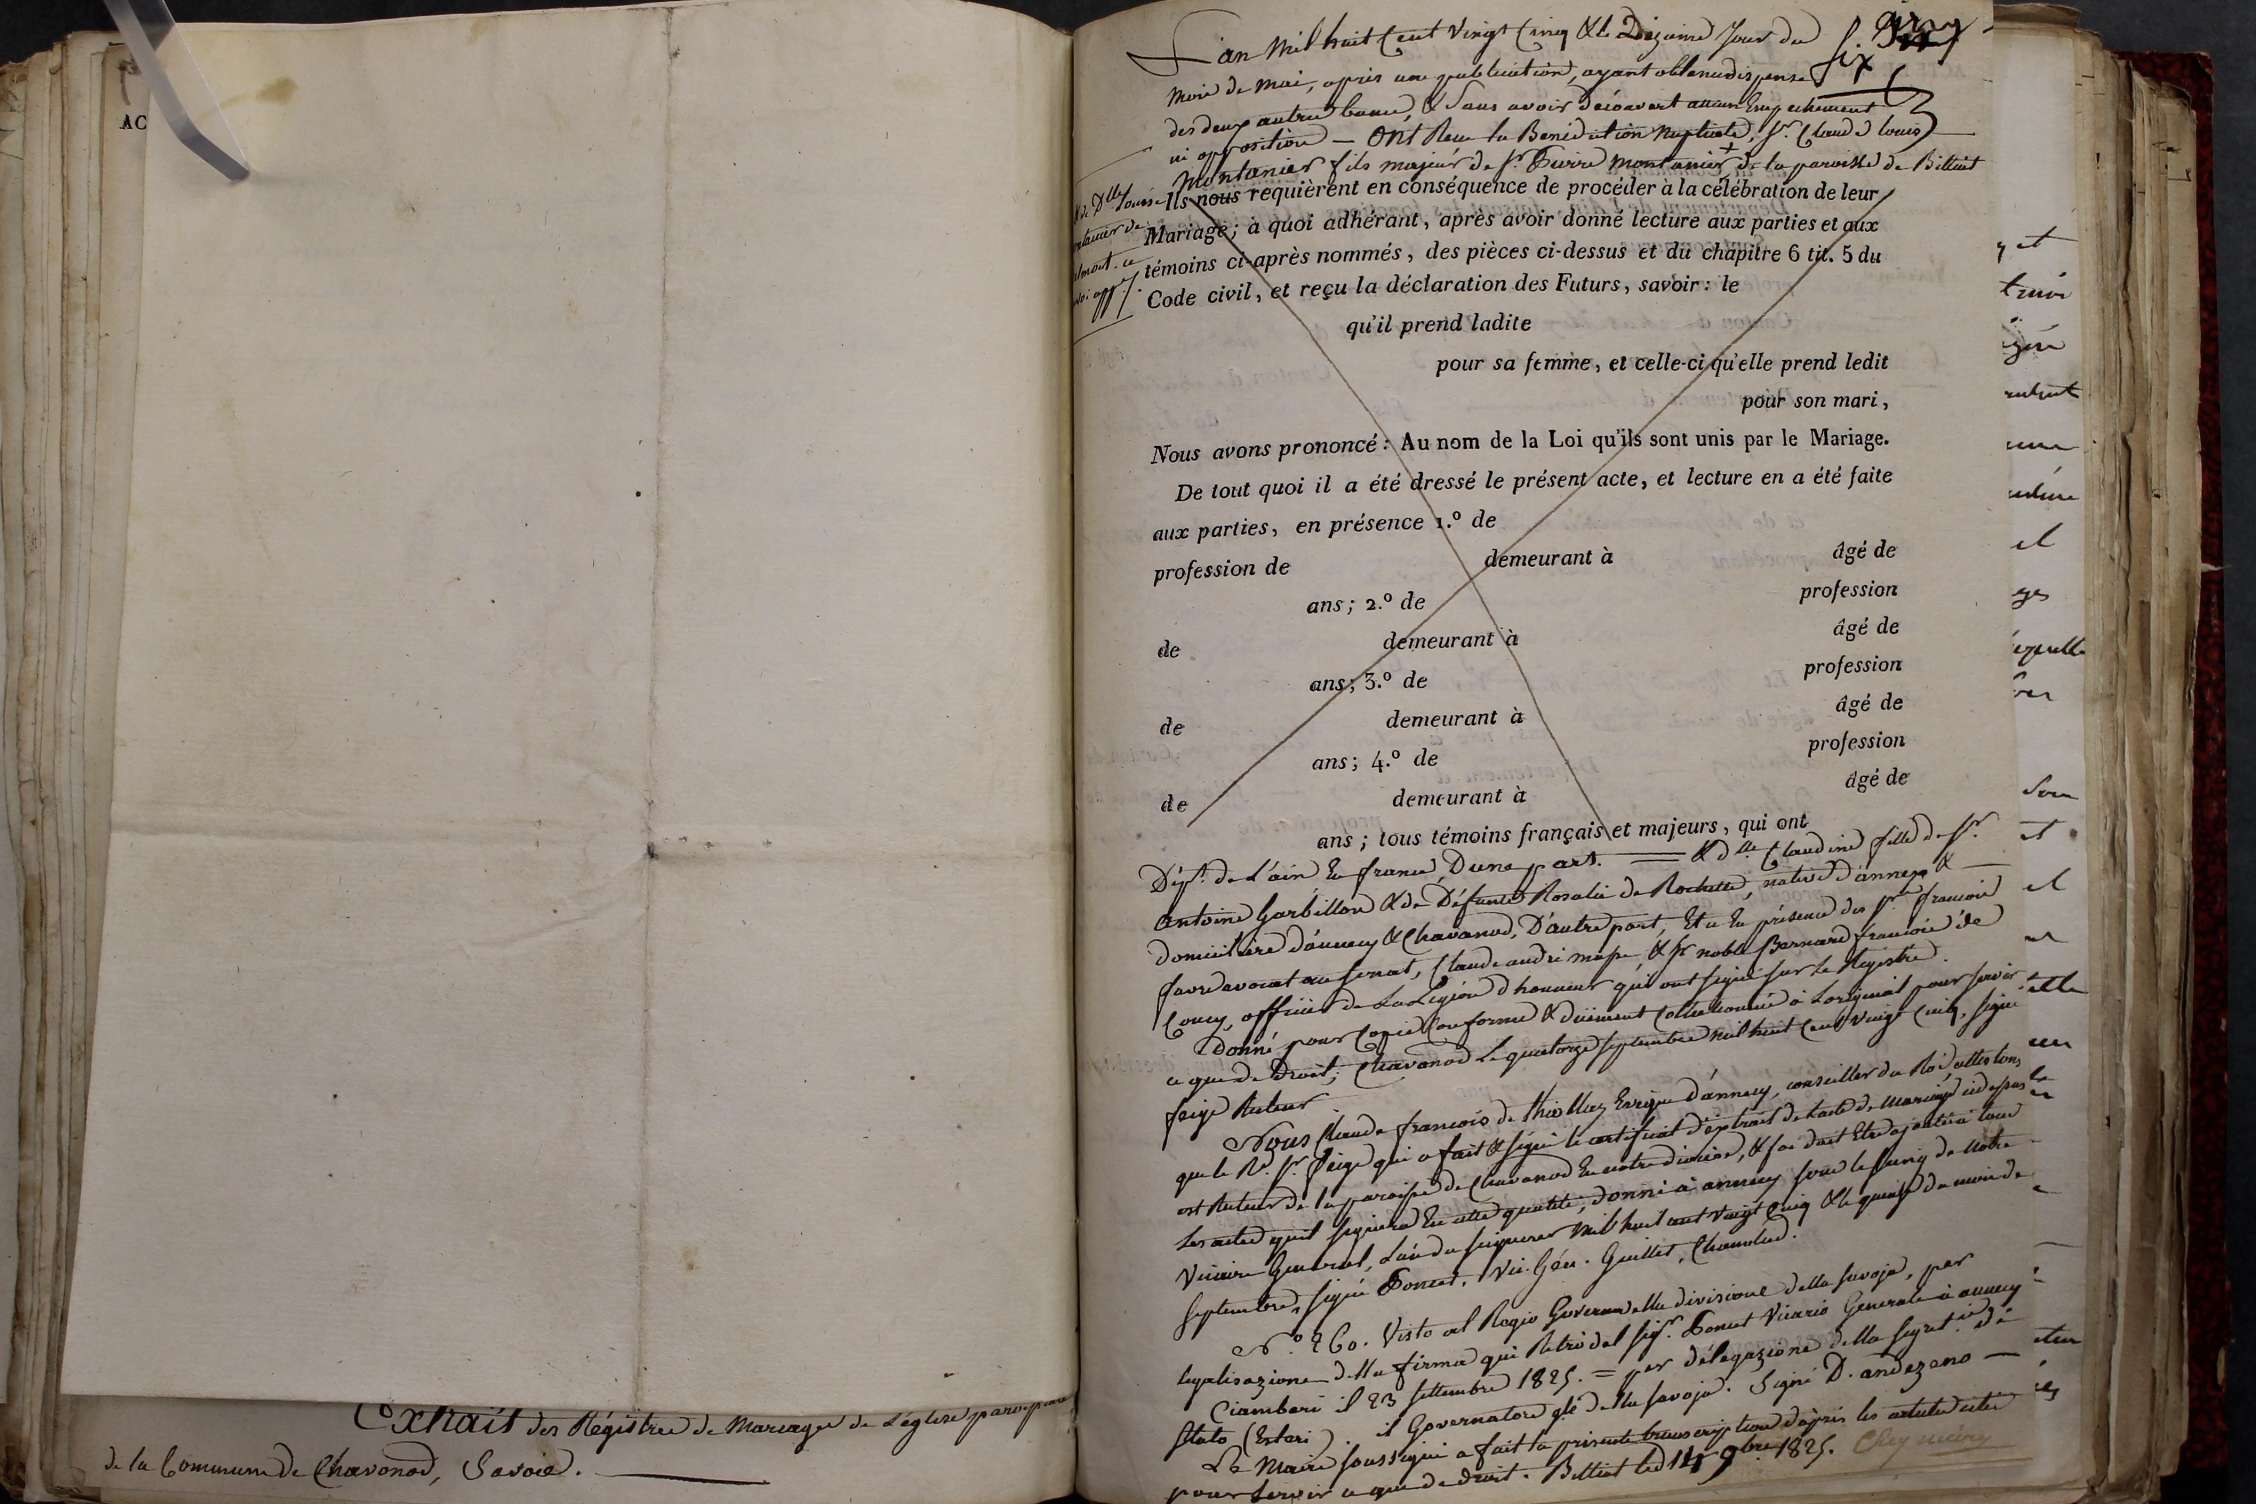 AC
Extrait des Régistres de Mariage de L'église paroissiale
de la Commune de Chavanod, Savoie.
L'an Mil huit Cent Vingt Cinq & le Dizaine Jour du
Mois de Mai, après une publication, ayant obtenu dispense
des deux autres bancs, & Sans avoir découvert aucun Empechement
ni opposition — ONt Recu la Benediction Nuptiale, Sr. Claude Louis
Montanier fils majeur de Sr. Pierre Montanier + de la paroisse de Billiat
six
& de Dlle Louise
montanier de
Ils nous requièrent en conséquence de procéder à la célébration de leur
Mariage; à quoi adhérant, après avoir donné lecture aux parties et aux
témoins ci-après nommés, des pièces ci-dessus et du chapitre 6 tit. 5 du
Code civil, et reçu la déclaration des Futurs, savoir: le
qu'il prend ladite
pour sa femme, et celle-ci qu'elle prend ledit
pour son mari,
Nous avons prononcé: Au nom de la Loi qu'ils sont unis par le Mariage.
De tout quoi il a été dressé le présent acte, et lecture en a été faite
aux parties, en présence 1.º de
profession de demeurant à âgé de
ans; 2.º de profession
de demeurant à âgé de
ans; 3.º de profession
de demeurant à âgé de
ans; 4.º de profession
de demeurant à âgé de
ans; tous témoins français et majeurs, qui ont
Dépt. de L'ain En france, D'une part. = & dlle Claudine fille de Sr.
antoine Garbillon & de Défunte Rosalie de Rochette, native d'annecy &
domicilière d'annecy & Chavanod, D'autre part, Et ce En présence des Srs francois
favre avocat au Senat, Claude andré &  Sr noble Bernard francois de
Coucy, officier de La Légion d'honneur qui ont signé sur le Régistre.
Donné pour Copie Conforme & dûement Collationnée à L'original pour servir
ce que de Droit; Chavanod Le quatorze septembre mil huit Cent vingt Cinq, signé
feige Recteur
Nous Claude francois de thiollaz Evêque d'annecy, conseiller du Roi, attestons
que le Rd. Sr. feige qui a fait & signé le certificat d'extrait de l'acte de Mariage ci dessus
est Recteur de la paroisse de Chavanod En notre diocèse, & foi doit Etre ajoutée à tous
Les actes qu'il signera En cette qualité, donné à annecy sous le seing de Notre
Vicaire General, L'an du seigneur Mil huit cent vingt Cinq & le quinze du mois de
septembre, signé Poncet, Vic. Gén. Guillet, Chancelier.
N.º 260. Visto al Regio Governo della divisione della Savoja, per
legalisazione della firma qui Retro del Sigr. Poncet Vicario Generale à annecy
Ciamberi il 23 settembre 1825. = per délegazione della segret.ia di
Stato (Esteri). il Governatore gle della Savoja. Signé D. andezeno —
Le Maire soussigné a fait la présente transcription d'après les articles cités
pour servir ce que de droit. Billiat le 14 9bre 1825.